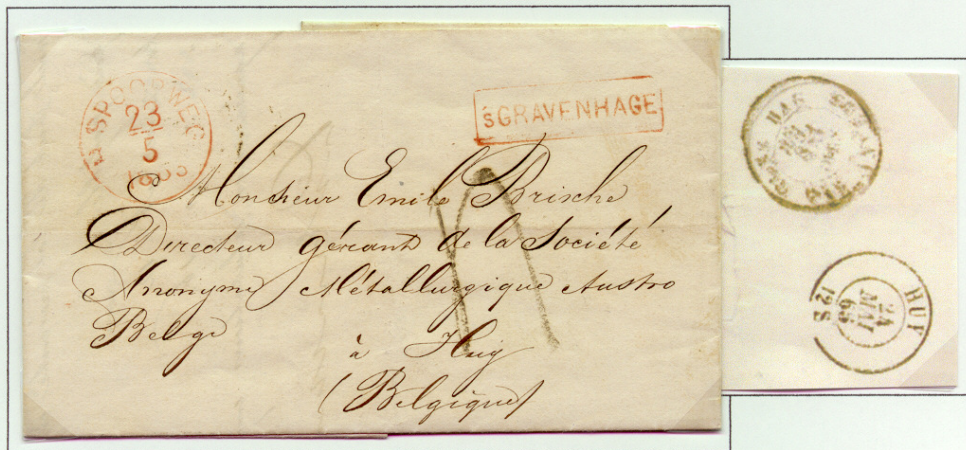 SPOORWEG
23
5
1863
'sGRAVENHAGE
Monsieur Emile Brixhe
Directeur gérant de la Société
Anonyme Métallurgique Austro
Belge
à Huy
(Belgique)
HUY
24
MAI
63
12 S